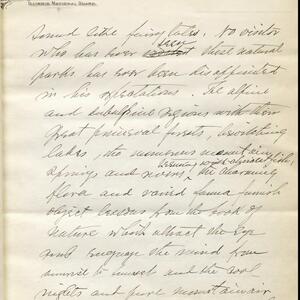 ILLINOIS NATIONAL GUARD.
sound like fairy tales. No visitor
who has ever seen these natural
parks has ever been disappointed
in his expectations. The alpine
and subalpine regions with their
great primeval forests, bewitching
lakes, the numerous mountains,
springs and rivers the charming
flora and varied fauna furnish
object lessons from the book of
nature which attract the eye
and engage the mind from
sunrise to sunset and the cool
nights and pure mountain air